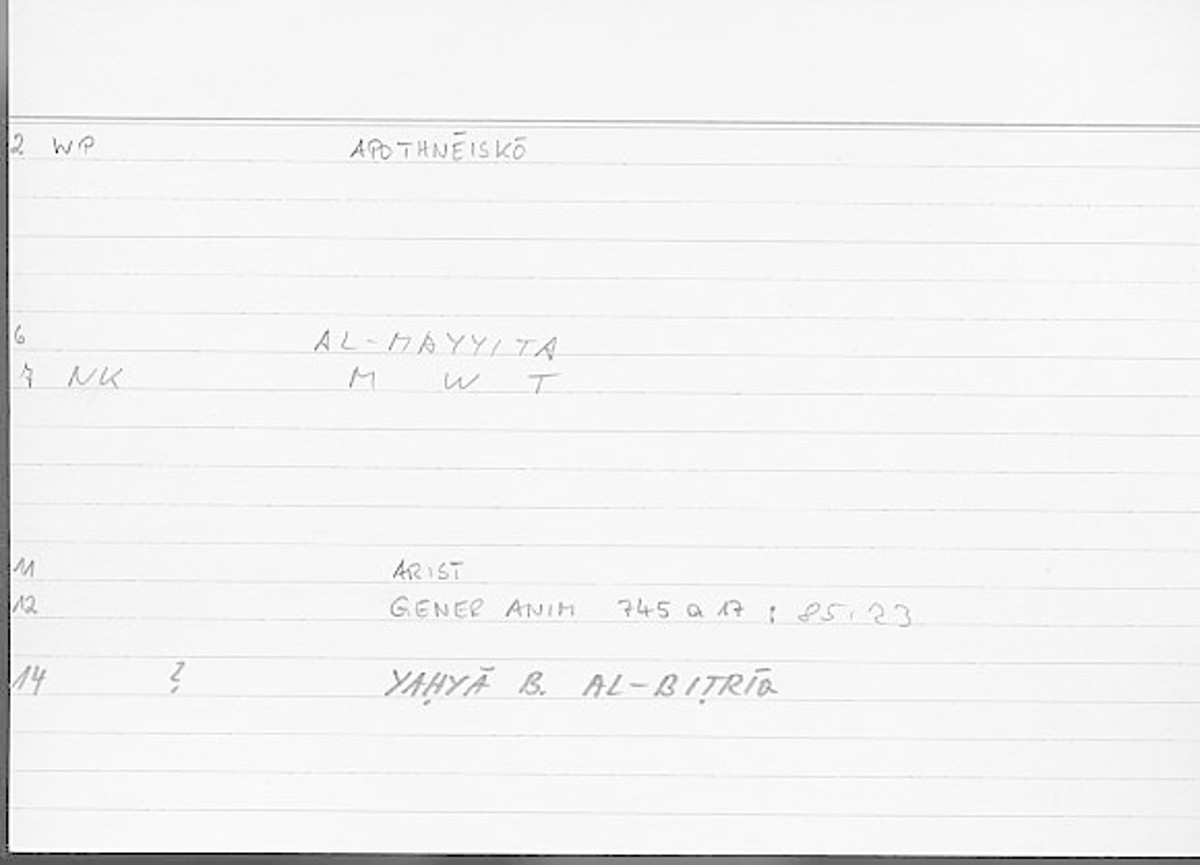 2 WP APOTHNĒISKŌ
6 AL-MAYYITA
7 NK M W T
11 ARIST
12 GENER ANIM 745 a 17 ; 85,23
14 ? YAḤYĀ B. AL-BIṬRĪQ